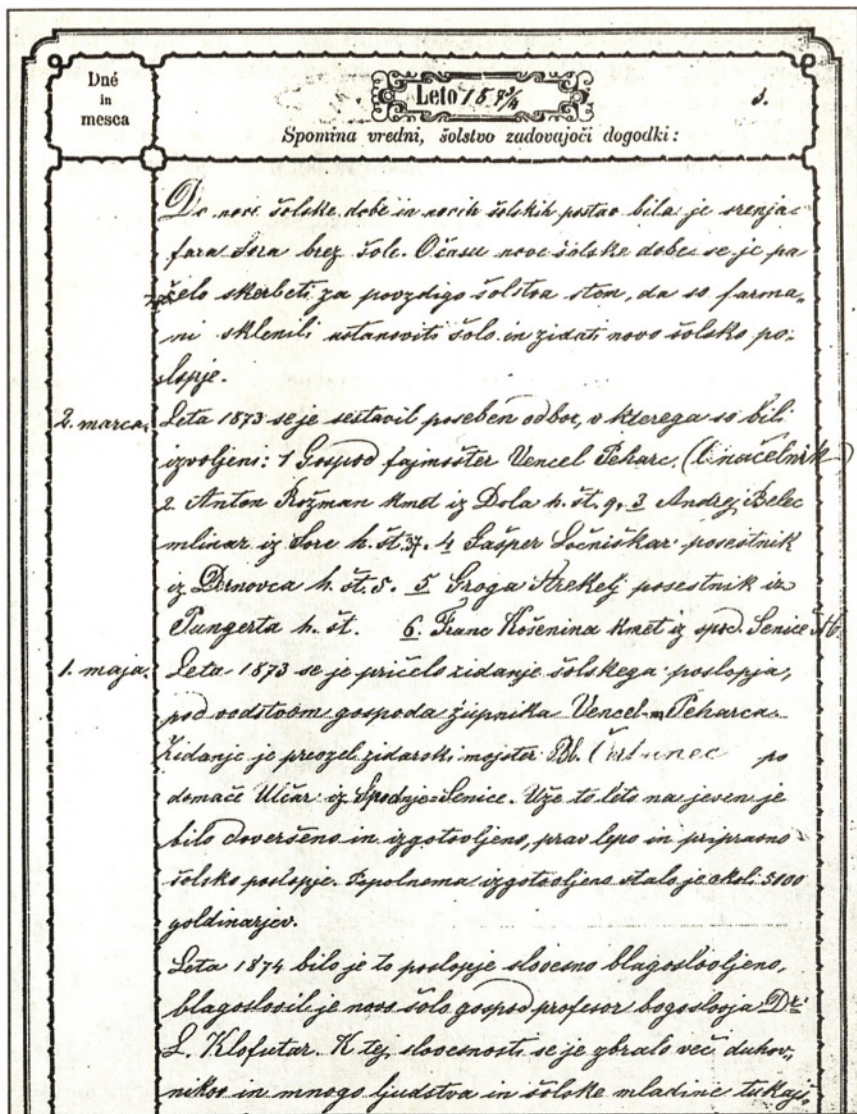 Dné
in
mesca
Leto 187 3/4
3.
Spomina vredni, šolstvo zadovajoči dogodki:
Do nove šolske dobe in novih šolskih postav bila je srenja-
fara Sora brez šole. O času nove šolske dobe se je pa
začelo skerbeti za povzdigo šolstva s tem, da so farma„
ni sklenili ustanoviti šolo in zidati novo šolsko po-
slopje.
2. marca. Leta 1873 se je sestavil poseben odbor, v kterega so bili
izvoljeni: 1 Gospod fajmošter Vencel Peharc. (načelnik)
2. Anton Rožman kmet iz Dola h. št. 9. 3 Andrej Belec
mlinar iz Sore h. št. 37. 4 Gašper Ločniškar posestnik
iz Dernovca h. št. 5. 5 Groga Strekelj posestnik iz
Pungerta h. št. 6. Franc Košenina kmet iz spod. Senice
1. maja. Leta 1873 se je pričelo zidanje šolskega poslopja,
pod vodstvom gospoda župnika Vencel-na Peharca.
Zidanje je prevzel zidarski mojster Bl. po
domače Ulčar iz Spodnje=Senice. Uže to léto na jesen je
bilo doveršeno in izgotovljeno, prav lepo in pripravno
šolsko poslopje. Popolnoma izgotovljeno stalo je okoli 5100
goldinarjev.
Leta 1874 bilo je to poslopje slovesno blagoslovljeno,
blagoslovil je novo šolo gospod profesor bogoslovja Dr.
L. Klofutar. K tej slovesnosti se je zbralo več duhov„
nikov in mnogo ljudstva in šolske mladine tukaj„